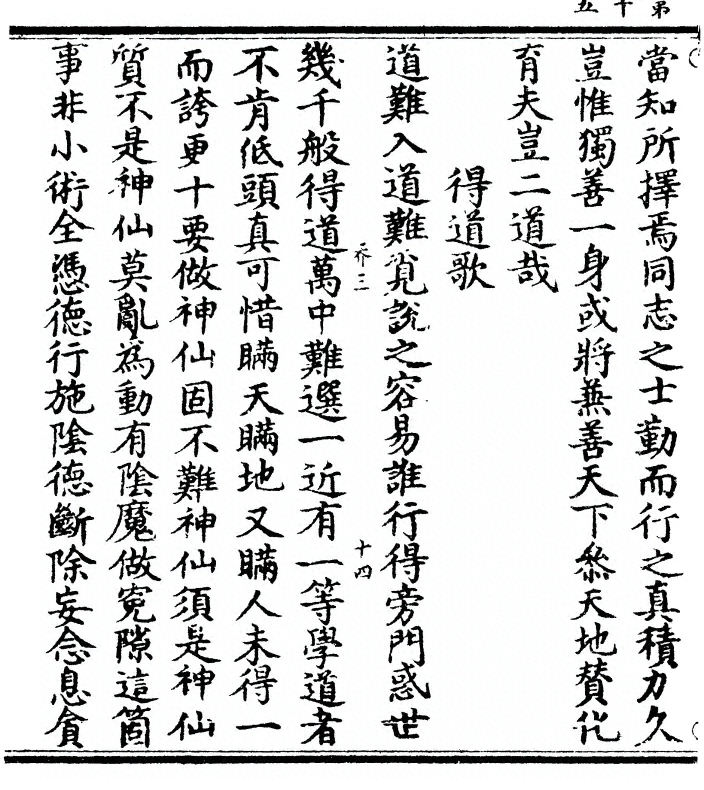 第十五
當知所擇焉同志之士勤而行之真積力久
豈惟獨善一身或將兼善天下叅天地賛化
育夫豈二道哉
得道歌
道難入道難覔說之容易誰行得旁門惑世
乔三
十四
幾千般得道萬中難選一近有一等學道者
不肯低頭真可惜瞞天瞞地又瞞人未得一
而誇更十要做神仙固不難神仙須是神仙
質不是神仙莫亂為動有陰魔做寃隙這箇
事非小術全憑德行施陰德斷除妄念息貪